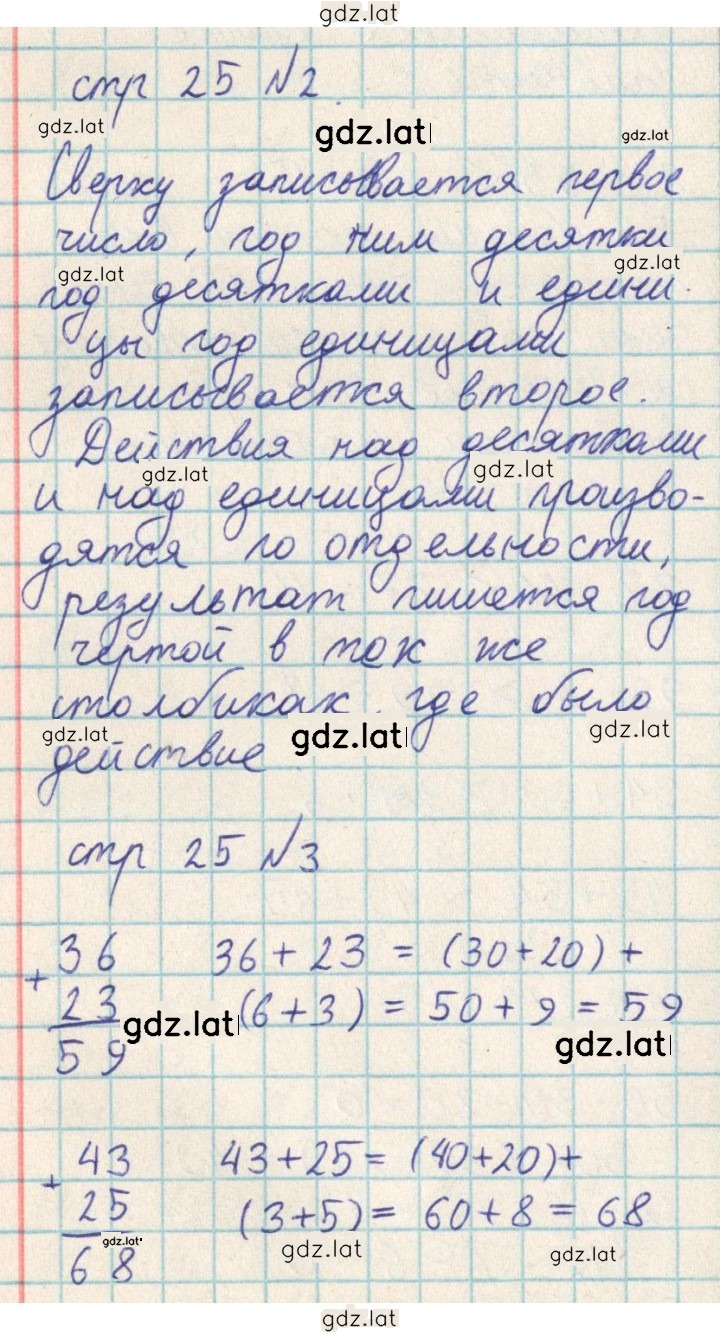 gdz.lat
стр 25 №2.
gdz.lat gdz.lat gdz.lat
Сверху записывается первое
число, под ним десятки
gdz.lat gdz.lat
под десятками и едини
цы под единицами
записывается второе.
Действия над десятками
gdz.lat gdz.lat
и над единицами произво-
дятся по отдельности,
результат пишется под
чертой в тех же
столбиках где было
gdz.lat gdz.lat gdz.lat
действие.
стр 25 №3
+ 36 36 + 23 = (30+20) +
23 gdz.lat (6+3) = 50 + 9 = 59
59 gdz.lat
+ 43 43+25= (40+20)+
25 (3+5)= 60+8 = 68
gdz.lat
68 gdz.lat gdz.lat
gdz.lat